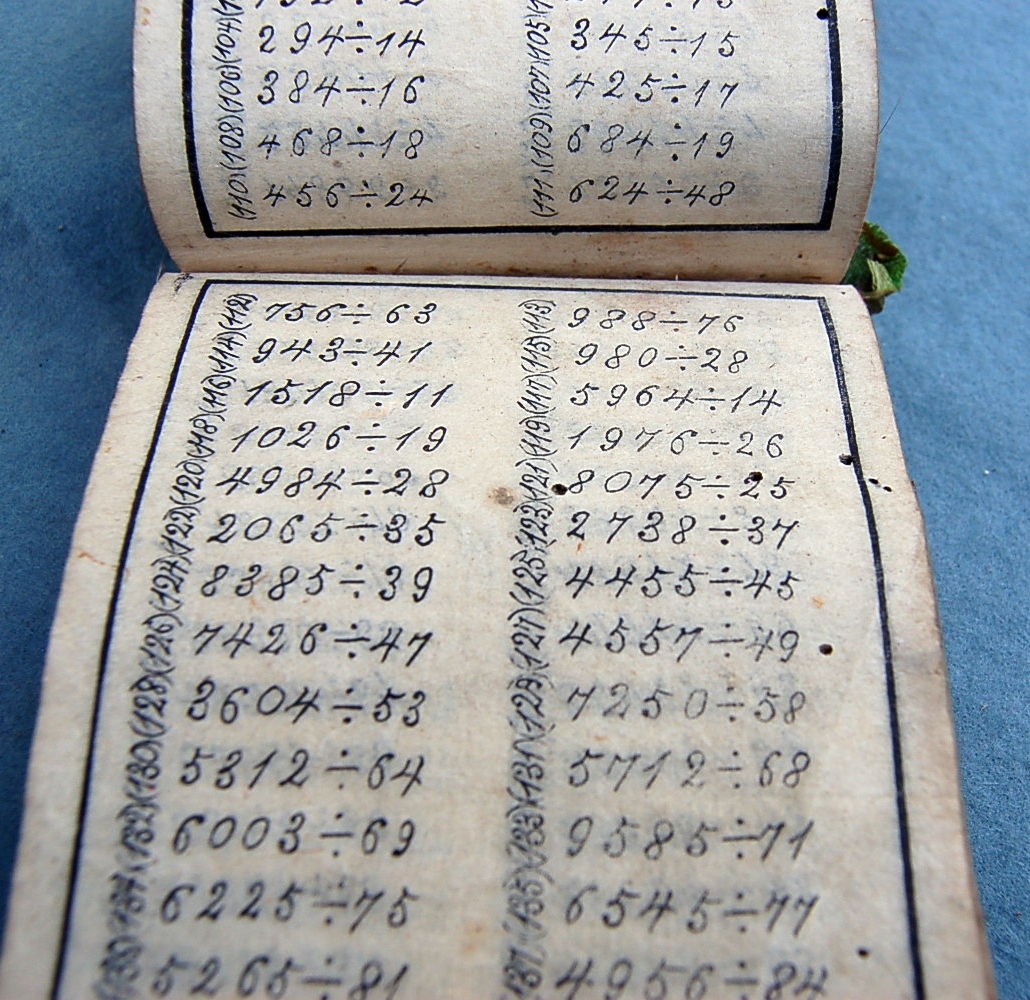 (104) 294÷14 (105) 345÷15
(106) 384÷16 (107) 425÷17
(108) 468÷18 (109) 684÷19
(110) 456÷24 (111) 624÷48
(112) 756÷63 (113) 988÷76
(114) 943÷41 (115) 980÷28
(116) 1518÷11 (117) 5964÷14
(118) 1026÷19 (119) 1976÷26
(120) 4984÷28 (121) 8075÷25
(122) 2065÷35 (123) 2738÷37
(124) 8385÷39 (125) 4455÷45
(126) 7426÷47 (127) 4557÷49
(128) 3604÷53 (129) 7250÷58
(130) 5312÷64 (131) 5712÷68
(132) 6003÷69 (133) 9585÷71
(134) 6225÷75 (135) 6545÷77
(136) 5265÷81 (137) 4956÷84